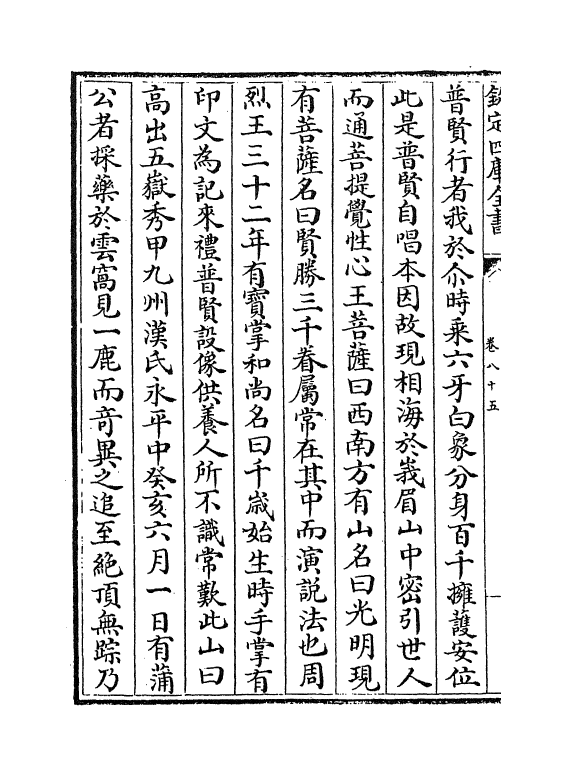 欽定四庫全書
卷八十五
一
普賢行者我於尒時乘六牙白象分身百千擁護安位
此是普賢自唱本因故現相海於峩眉山中密引世人
而通菩提覺性心王菩薩曰西南方有山名曰光明現
有菩薩名曰賢勝三千眷屬常在其中而演說法也周
烈王三十二年有寶掌和尚名曰千歲始生時手掌有
印文為記來禮普賢設像供養人所不識常歎此山曰
高出五嶽秀甲九州漢氏永平中癸亥六月一日有蒲
公者採藥於雲窩見一鹿而竒異之追至絶頂無踪乃